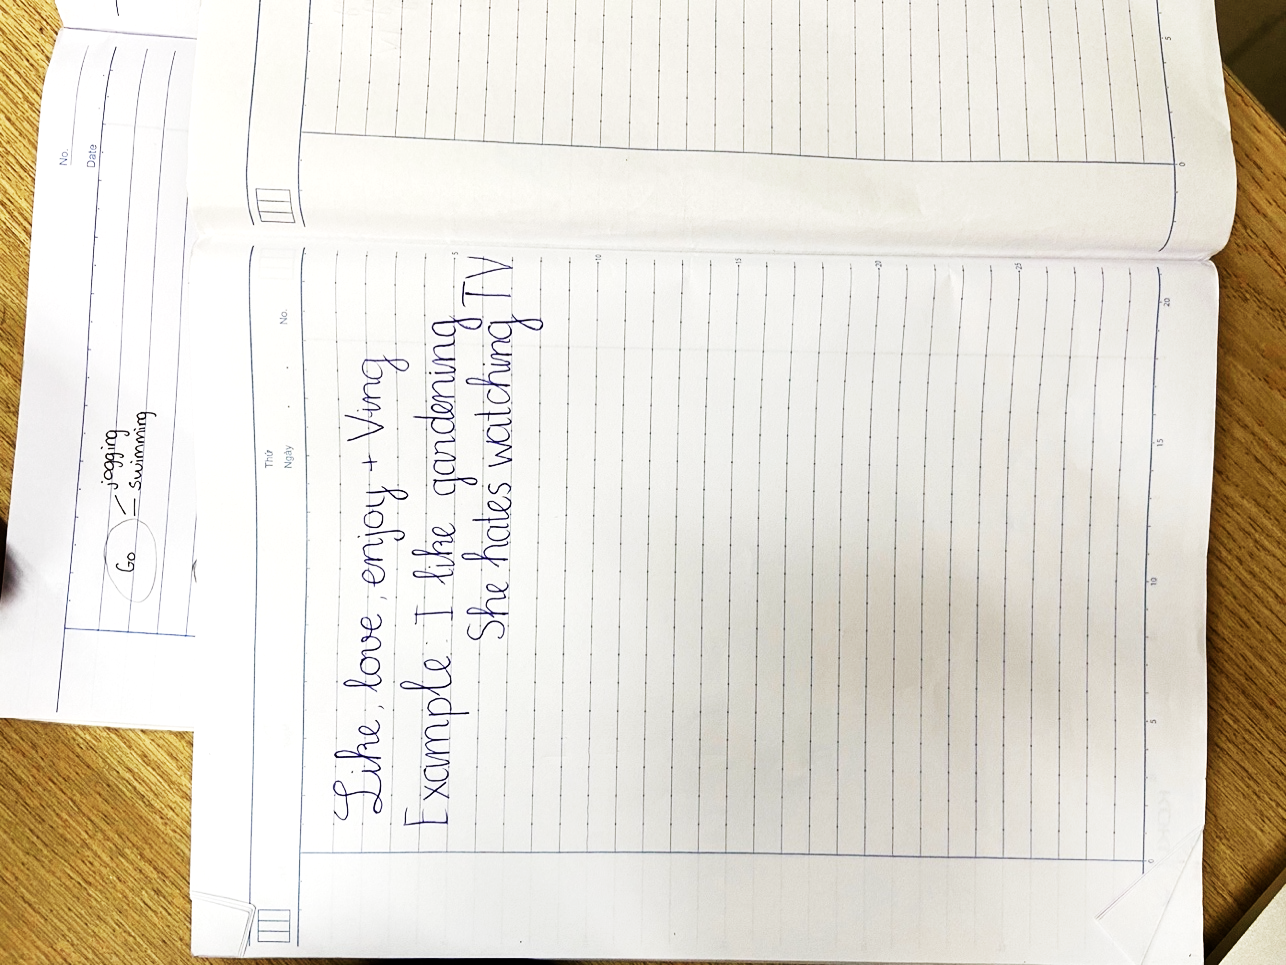 No.
Date
Go
jogging
swimming
Thứ
Ngày
No.
Like, love, enjoy + Ving
Example: I like gardening
She hates watching TV
5
10
15
20
25
0
5
10
15
20
0
5